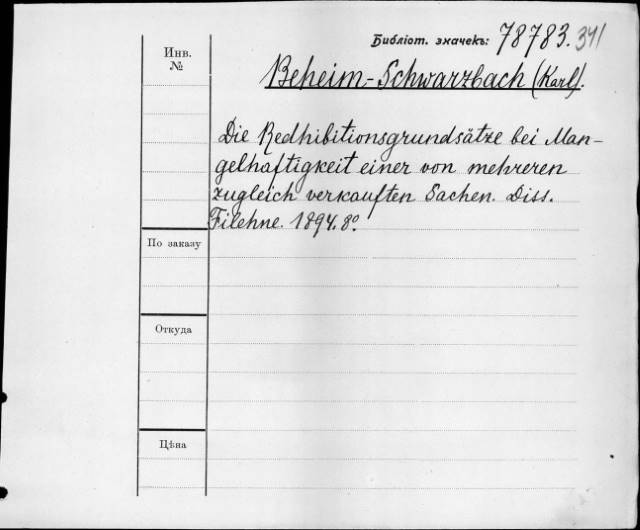 Библіот. значекъ: 78783.341
Инв.
№
Beheim-Schwarzbach (Karl).
Die Redhibitionsgrundsätze bei Man-
gelhaftigkeit einer von mehreren
zugleich verkauften Sachen. Diss.
Filehne. 1894. 8º
По заказу
Откуда
Цѣна